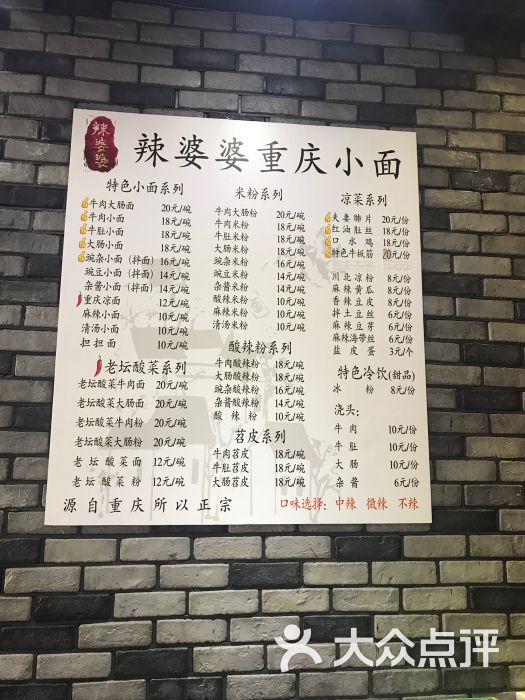 辣婆婆
辣婆婆重庆小面
特色小面系列
牛肉大肠面 20元/碗
牛肉小面 18元/碗
牛肚小面 18元/碗
大肠小面 18元/碗
豌杂小面(拌面) 16元/碗
豌豆小面(拌面) 14元/碗
杂酱小面(拌面) 14元/碗
重庆凉面 12元/碗
麻辣小面 10元/碗
清汤小面 10元/碗
担担面 10元/碗
老坛酸菜系列
老坛酸菜牛肉面 20元/碗
老坛酸菜大肠面 20元/碗
老坛酸菜牛肉粉 20元/碗
老坛酸菜大肠粉 20元/碗
老坛酸菜面 12元/碗
老坛酸菜粉 12元/碗
米粉系列
牛肉大肠粉 20元/碗
牛肉米粉 18元/碗
牛肚米粉 18元/碗
大肠米粉 18元/碗
豌杂米粉 16元/碗
豌豆米粉 14元/碗
杂酱米粉 14元/碗
酸辣米粉 10元/碗
麻辣米粉 10元/碗
清汤米粉 10元/碗
酸辣粉系列
牛肉酸辣粉 18元/碗
大肠酸辣粉 18元/碗
豌杂酸辣粉 16元/碗
杂酱酸辣粉 14元/碗
酸辣粉 10元/碗
苕皮系列
牛肉苕皮 18元/碗
牛肚苕皮 18元/碗
大肠苕皮 18元/碗
凉菜系列
夫妻肺片 20元/份
红油肚丝 18元/份
口水鸡 18元/份
特色牛板筋 20元/份
川北凉粉 8元/份
麻辣黄瓜 8元/份
香辣豆皮 8元/份
拌土豆丝 6元/份
麻辣豆芽 6元/份
麻辣海带丝 6元/份
盐皮蛋 3元/个
特色冷饮(甜品)
冰粉 8元/份
浇头:
牛肉 10元/份
牛肚 10元/份
大肠 10元/份
杂酱 6元/份
源自重庆所以正宗
口味选择:中辣 微辣 不辣
大众点评